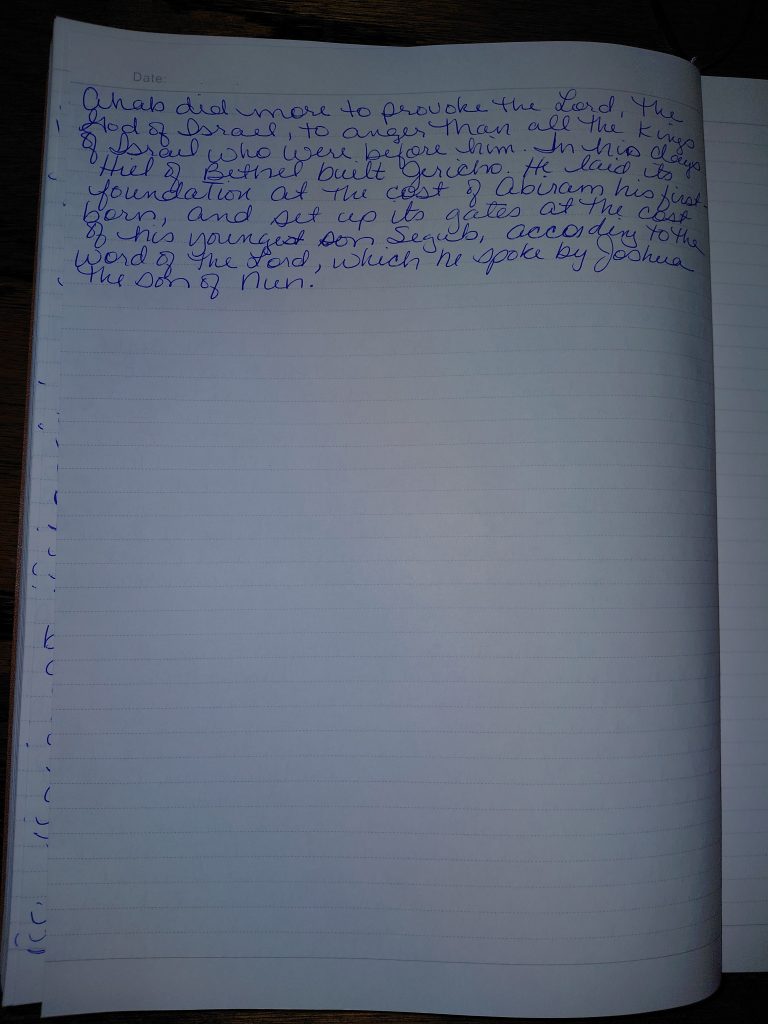 Date:
Ahab did more to provoke the Lord, the
God of Israel, to anger than all the Kings
of Israel who were before him. In his days
Hiel of Bethel built Jericho. He laid its
foundation at the cost of Abiram his first-
born, and set up its gates at the cost
of his youngest son Segub, according to the
word of the Lord, which he spoke by Joshua
the son of Nun.